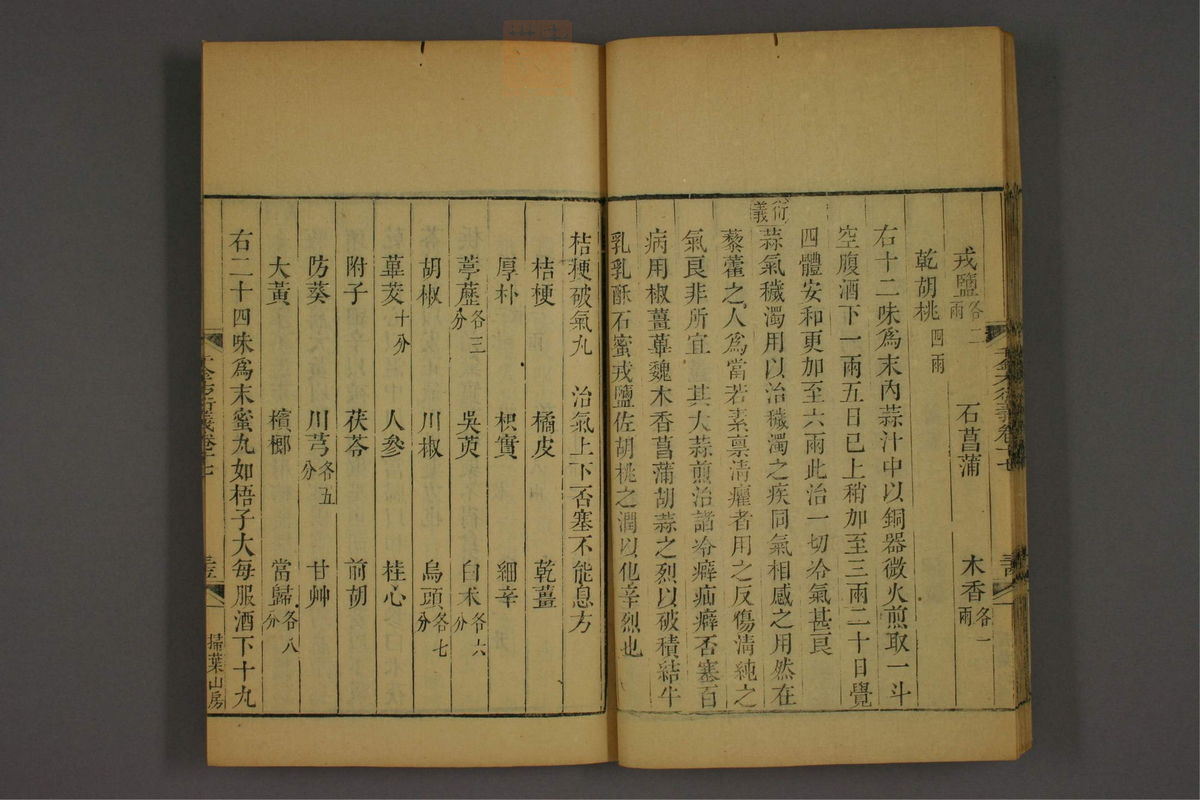 戎鹽各二兩　石菖蒲　木香各一兩
乾胡桃四兩
右十二味爲末內蒜汁中以銅器微火煎取一斗
空腹酒下一兩五日已上稍加至三兩二十日覺
四體安和更加至六兩此治一切冷氣甚良
衍義
蒜氣穢濁用以治穢濁之疾同氣相感之用然在
藜藿之人爲當若素禀清癯者用之反傷清純之
氣良非所宜　其大蒜煎治諸冷癖疝癖否塞百
病用椒薑蓽魏木香菖蒲胡蒜之烈以破積結牛
乳乳酥石蜜戎鹽佐胡桃之潤以化辛烈也
桔梗破氣丸　治氣上下否塞不能息方
桔梗　橘皮　乾薑
厚朴　枳實　細辛
葶藶各三分　吳萸　白朮各六分
胡椒　川椒　烏頭各七分
蓽茇十分　人參　桂心
附子　茯苓　前胡
防葵　川芎各五分　甘艸
大黃　檳榔　當歸各八分
右二十四味爲末蜜丸如梧子大每服酒下十九
千金方衍義卷十七
掃葉山房